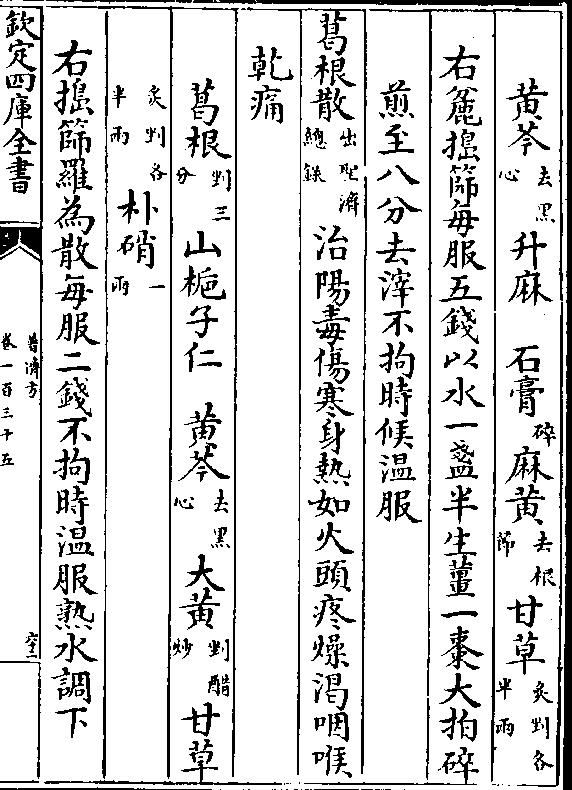 黄芩去黑心升麻　石膏碎麻黄去根節甘草炙剉各半兩
右麄搗篩每服五錢以水一盞半生薑一棗大拍碎
煎至八分去滓不拘時候温服
葛根散出聖濟總錄治陽毒傷寒身熱如火頭疼燥渴咽喉
乾痛
葛根剉三分山梔子仁　黄芩去黑心大黄剉醋炒甘草
炙剉各半兩朴硝一兩
右搗篩羅為散每服二錢不拘時温服熟水調下
欽定四庫全書
普濟方
卷一百三十五